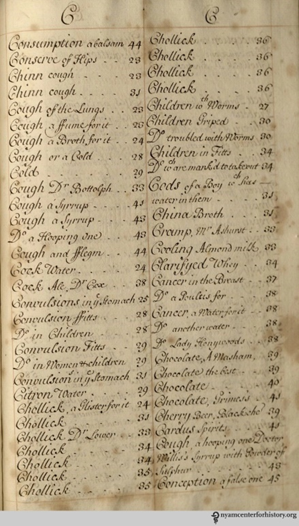 C
Consumption a balsam 44
Conserve of Hips 23
Chinn cough 23
Chinn cough 31
Cough of the Lungs 23
Cough a ffume for it 23
Cough a Broth for it 24
Cough or a Cold 28
Cold 29
Cough Dr Bottolph 33
Cough a Syrrup 41
Cough a Syrrup 43
Do a Hooping one 43
Cough and fflegm 44
Cock Water 24
Cock Ale, Dr Cox 38
Convulsions in ye Stomach 25
Convulsion ffitts 28
Do in Children 28
Convulsion Fitts 29
Do in Women & children 29
Convulsion in ye Stomach 31
Citron Water 29
Chollick, a Glister for it 24
Chollick 31
Chollick Dr Lower 33
Chollick 34
Chollick 34
Chollick 35
Chollick 35
C
Chollick 36
Chollick 36
Chollick 36
Chollick 36
Children wth Worms 27
Children Griped 30
Do troubled with Worms 30
Children in Fitts 34
Do wth are markd to take out 34
Cods of a Boy wth has
water in them 31
China Broth 31
Cramp, Mr Ashurst 33
Cooling Almond milk 33
Clarifyed Whey 34
Cancer in the Breast 37
Do a Poultis for 38
Cancer, a Water for it 38
Do another water 38
Do Lady Honywoods 38
Chocolate, A Masham 39
Chocolate the best 39
Chocolate 40
Chocolate, Primess 45
Cherry Beer, Black she 39
Cardus Spirits 41
Cough, a hooping one Docter
Willis's Syrrup with Powder of
Sulphur 43
Conception a false one 45
nyamcenterforhistory.org